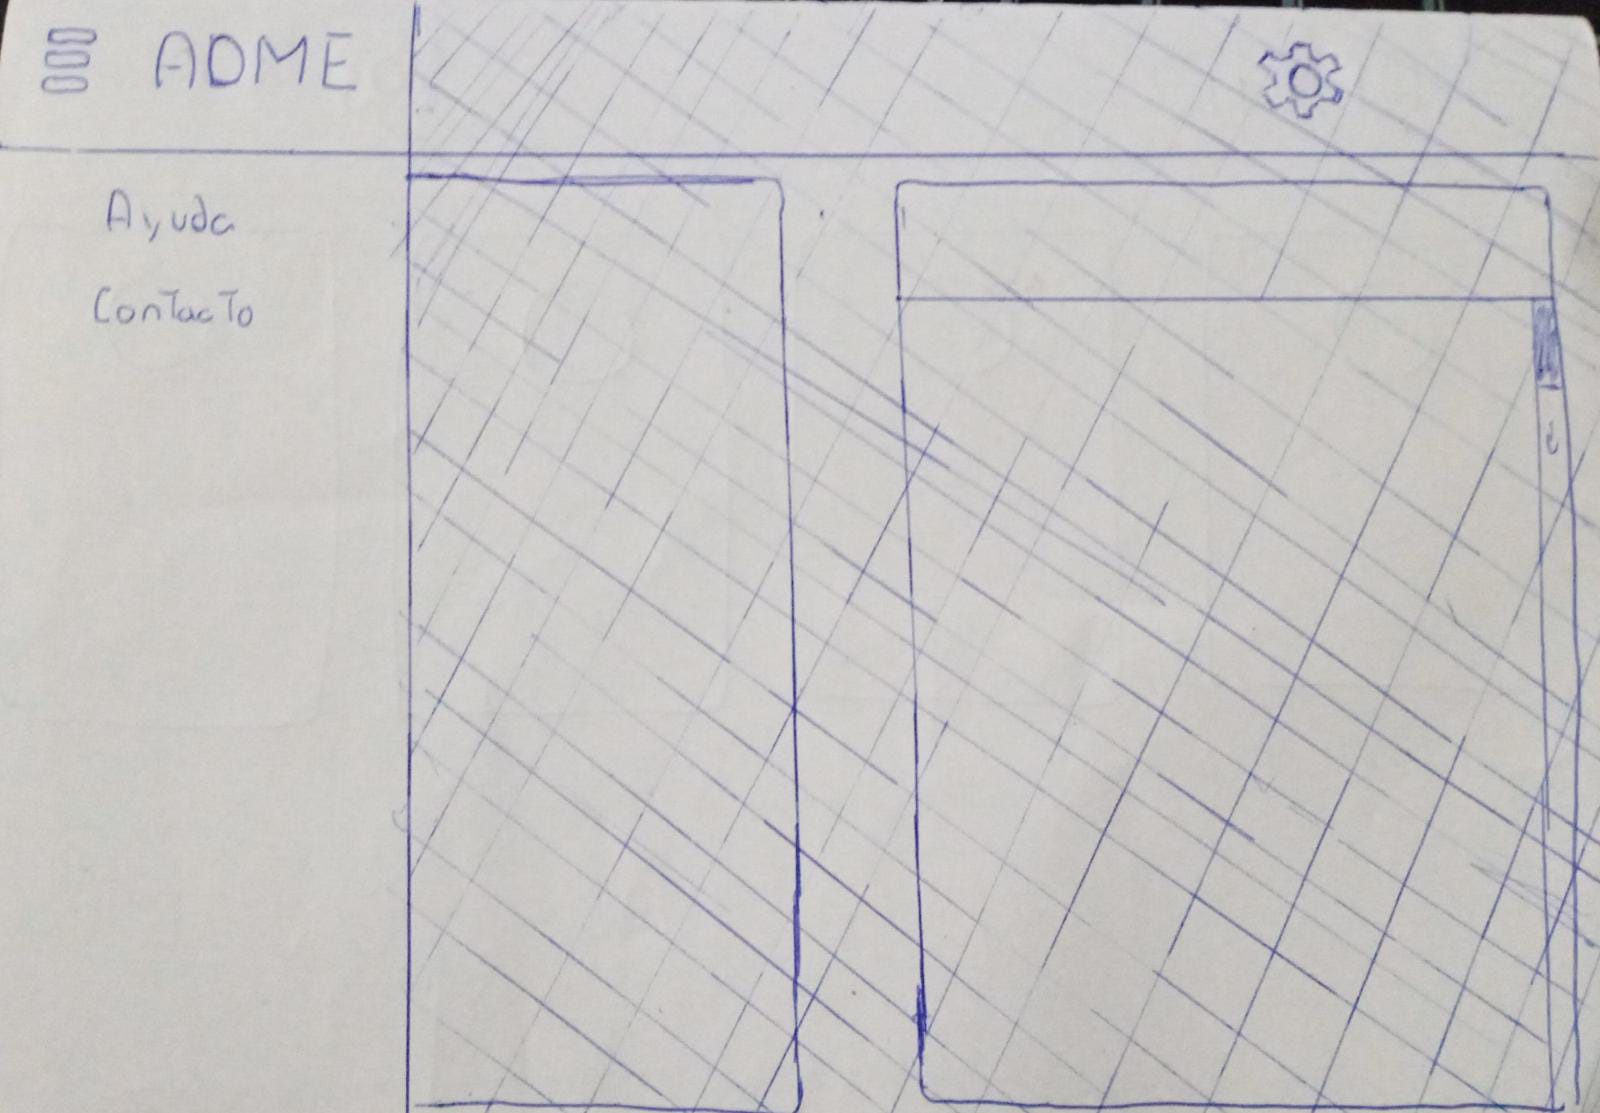 ADME
Ayuda
Contacto